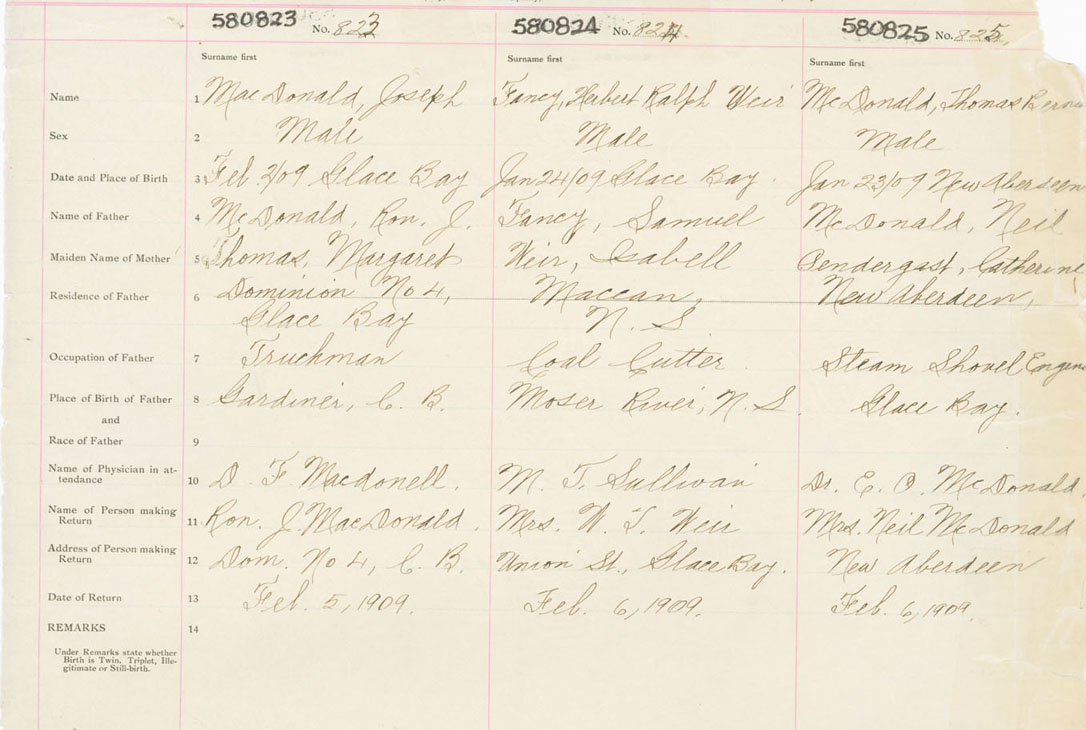 580823 No. 823 580824 No. 824 580825 No. 825
Surname first Surname first Surname first
Name 1 MacDonald, Joseph Fancy, Herbert Ralph Weir McDonald, Thomas
Sex 2 Male Male Male
Date and Place of Birth 3 Feb. 2/09 Glace Bay Jan 24/09 Glace Bay. Jan 23/09 New Aberdeen
Name of Father 4 McDonald, Ron. J. Fancy, Samuel McDonald, Neil
Maiden Name of Mother 5 Thomas, Margaret Weir, Isabell Pendergast, Catherine
Residence of Father 6 Dominion No 4, Maccan, New Aberdeen,
Glace Bay N. S.
Occupation of Father 7 Truckman Coal Cutter. Steam Shovel Engine
Place of Birth of Father 8 Gardiner, C. B. Moser River, N. S. Glace Bay.
and
Race of Father 9
Name of Physician in at-
tendance 10 D. F. Macdonell. M. T. Sullivan Dr. E. O. McDonald
Name of Person making
Return 11 Ron. J. MacDonald. Mrs. W. T. Weir Mrs. Neil McDonald
Address of Person making
Return 12 Dom. No 4, C. B. Union St., Glace Bay. New Aberdeen
Date of Return 13 Feb. 5, 1909. Feb. 6, 1909. Feb. 6, 1909.
REMARKS 14
Under Remarks state whether
Birth is Twin, Triplet, Ille-
gitimate or Still-birth.